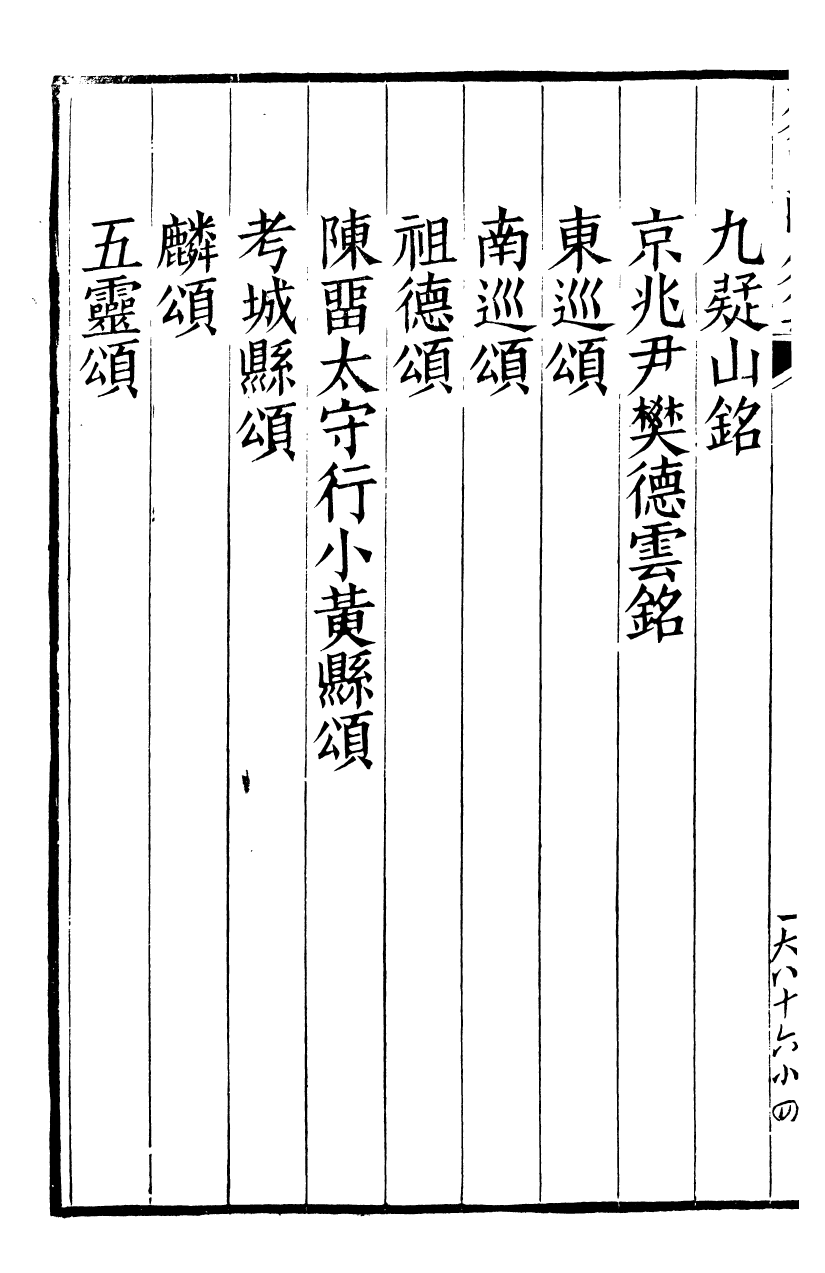 九疑山銘
京兆尹樊德雲銘
東巡頌
南巡頌
祖德頌
陳畱太守行小黃縣頌
考城縣頌
麟頌
五靈頌
一大八十六小四